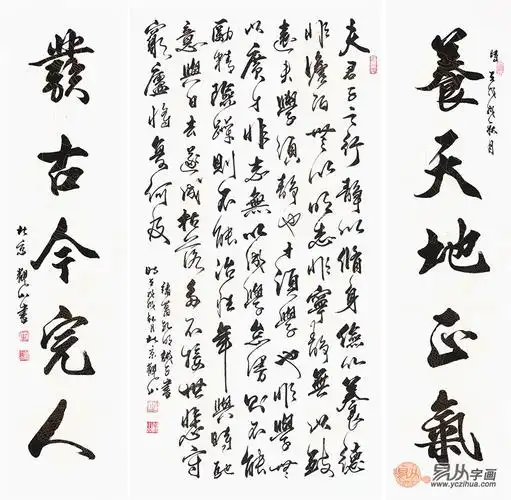 養天地正氣
時在戊戌秋月
夫君子之行靜以脩身儉以養德
非澹泊無以明志非寧靜無以致
遠夫學須靜也才須學也非學無
以廣才非志無以成學怠慢則不能
勵精險躁則不能冶性年與時馳
意與日去遂成枯落多不接世悲守
窮廬將復何及
諸葛孔明誡子書
時在戊戌秋月北京觀山
發古今完人
北京觀山書
易从字画
www.yczihua.com